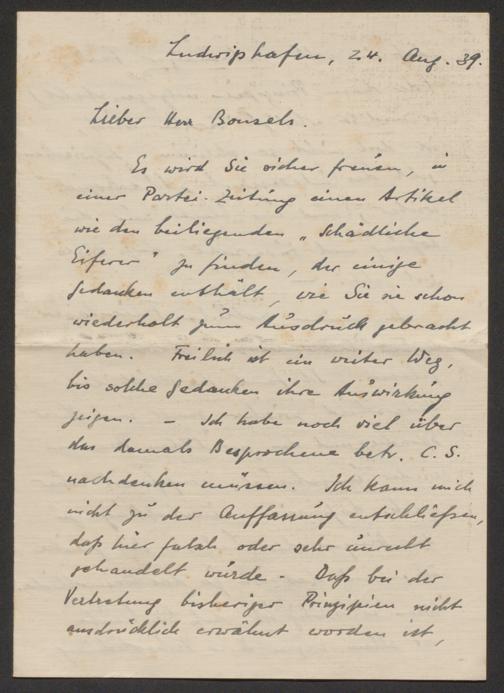 Ludwigshafen, 24. Aug. 39.
Lieber Herr Bonsels.
Es wird Sie sicher freuen, in
einer Partei-Zeitung einen Artikel
wie den beiliegenden „Schädliche
Eiferer" zu finden, der einige
Gedanken enthält, wie Sie sie schon
wiederholt zum Ausdruck gebracht
haben. Freilich ist ein weiter Weg,
bis solche Gedanken ihre Auswirkung
zeigen. – Ich habe noch viel über
das damals Besprochene betr. C. S.
nachdenken müssen. Ich kann mich
nicht zu der Auffassung entschließen,
daß hier falsch oder sehr unrecht
gehandelt wurde. Daß bei der
Vertretung bisheriger Prinzipien nicht
ausdrücklich erwähnt worden ist,